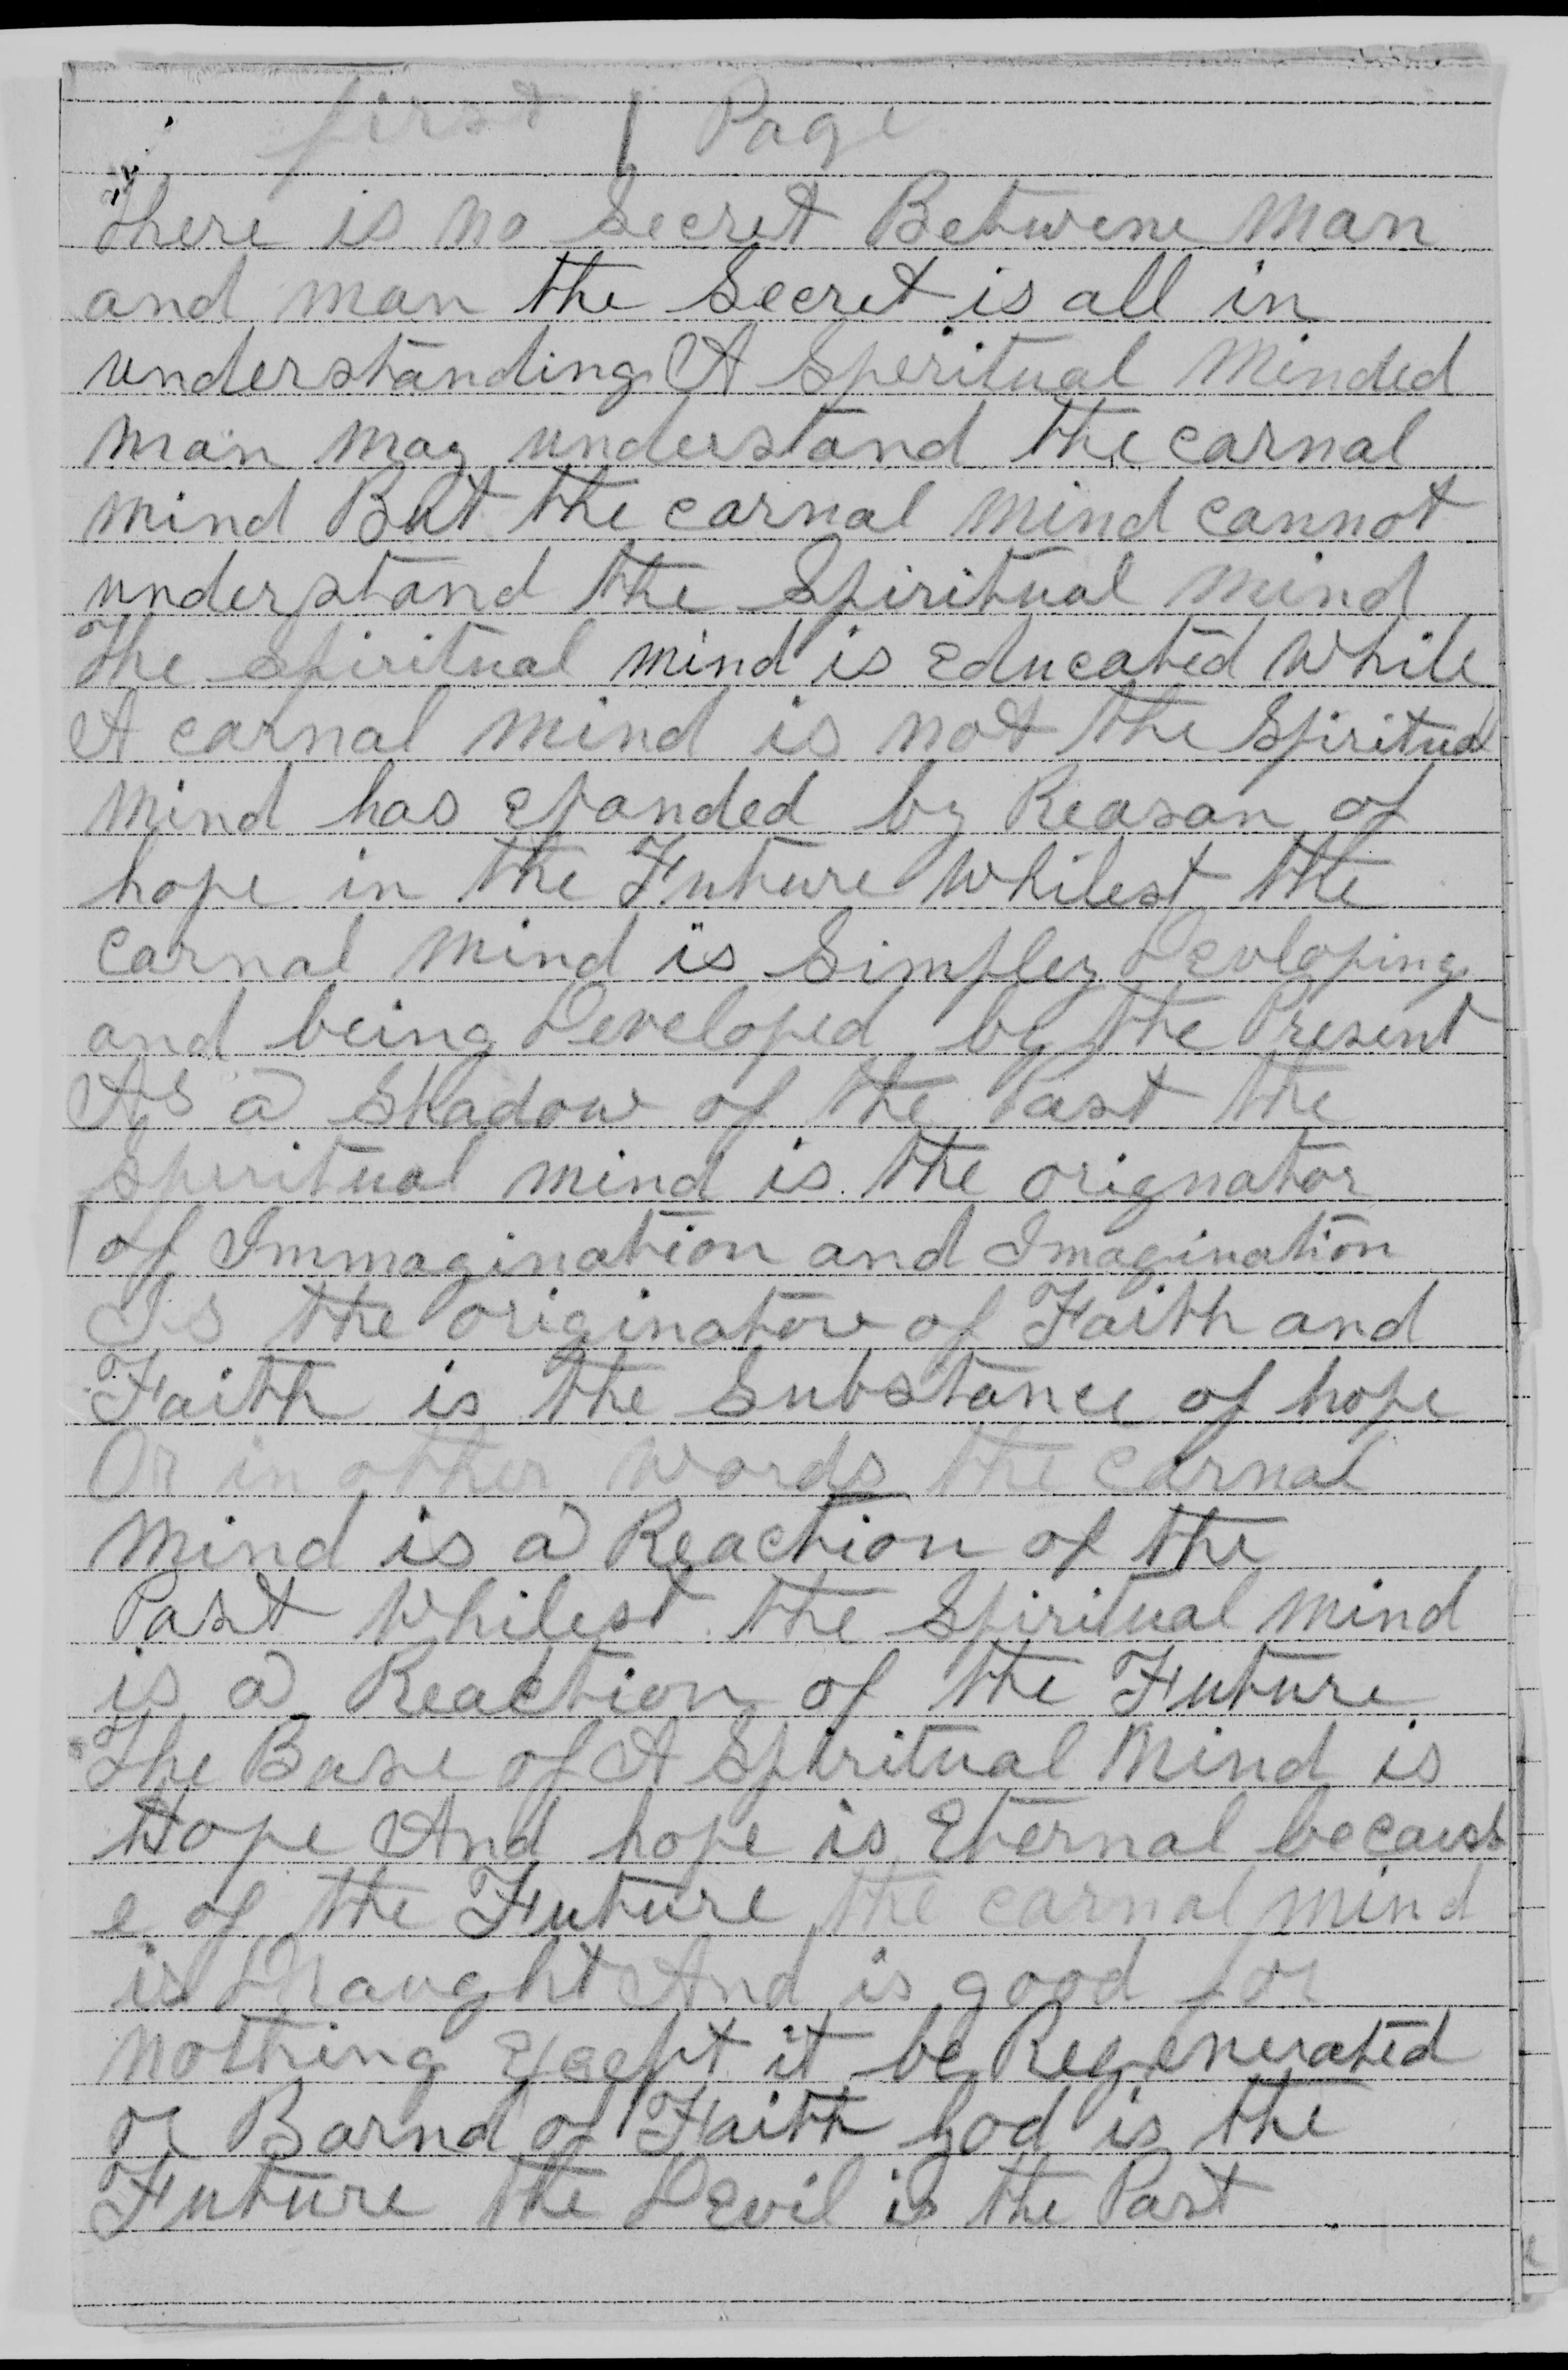 first 1 Page
There is no Secret Betwene man
and man the Secret is all in
understanding A Speritual Minded
man may understand the carnal
mind But the carnal mind cannot
understand the Spiritual mind
The spiritual mind is Educated While
A carnal mind is not the Spiritual
mind has epanded by Reason of
hope in the Future Whilest the
carnal mind is Simpley Devloping
and being Developed by the Present
As a Shadow of the Past the
Speritual mind is the orignator
of Immagination and Imagination
Is the originatore of Faith and
Faith is the Substance of hope
Or in other words the carnal
mind is a Reaction of the
Past Whilest the Spiritual mind
is a Reaction of the Future
The Base of A Spiritual Mind is
Hope And hope is Eternal becaus
e of the Future the carnal mind
is Naught And is good for
nothing Except it be Regenerated
or Barnd of Faith God is the
Future the Devil is the Past